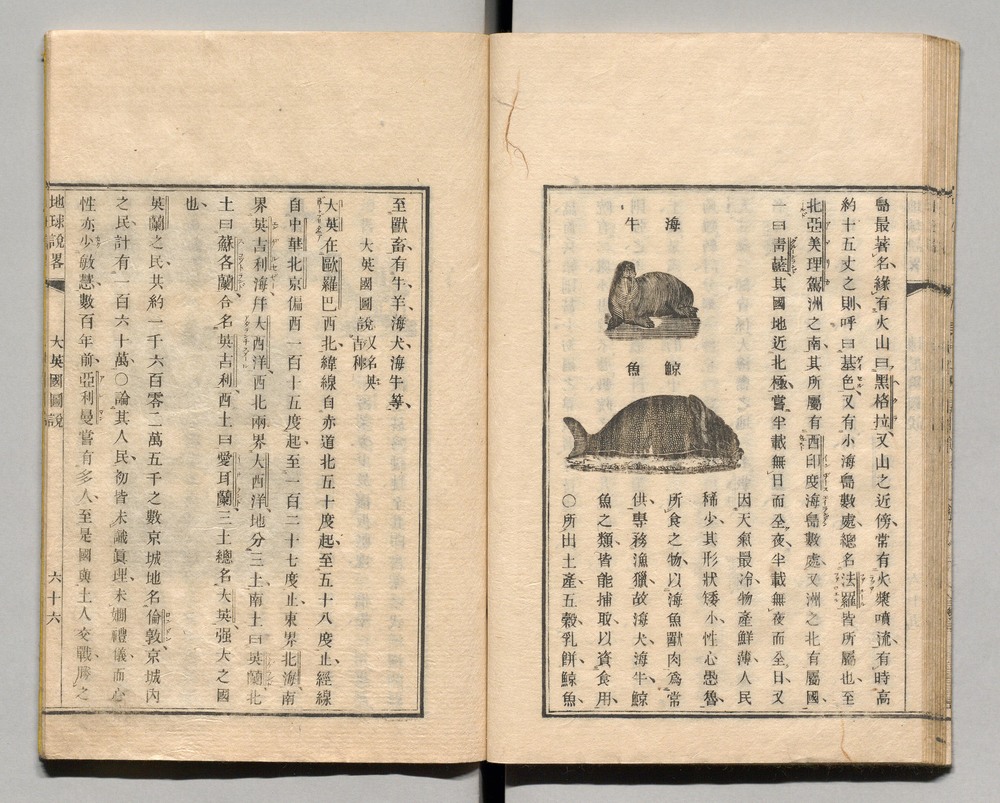 島最著名緣有火山曰黑格拉又山之近傍常有火漿噴流有時高
約十五丈之則呼曰基色又有小海島數處總名法羅皆所屬也至
北亞美理駕洲之南其所屬有西印度海島數處又洲之北有屬國
一曰靑蘊其國地近北極嘗半載無日而全夜半載無夜而全日又
因天氣最冷物產鮮薄人民
稀少其形狀矮小性心愚魯
所食之物以海魚獸肉爲常
供專務漁獵故海犬海牛鯨
魚之類皆能捕取以資食用
〇所出土產五穀乳餅鯨魚
海牛
鯨魚
至獸畜有牛羊海犬海牛等
大英國圖說又名英吉利
大英在歐羅巴西北緯線自赤道北五十度起至五十八度止經線
自中華北京偏西一百十五度起至一百二十七度止東界北海南
界英吉利海拜大西洋西北兩界大西洋地分三土南土曰英蘭北
土曰蘇各蘭合名英吉利西土曰愛耳蘭三土總名大英强大之國
也
英蘭之民共約一千六百零二萬五千之數京城地名倫敦京城內
之民計有一百六十萬〇論其人民初皆未識眞理未嫺禮儀而心
性亦少敏慧數百年前亞利曼嘗有多人至是國與土人交戰勝之
地球說畧 大英國圖說 六十六